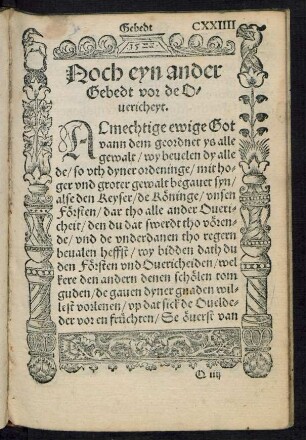 Gebedt CXXIIII
1522
Noch eyn ander
Gebedt vor de O-
uericheyt.
ALmechtige ewige Got
vann dem geordnet ys alle
gewalt / wy beuelen dy alle
de / so vth dyner ordeninge / mit ho-
ger vnd groter gewalt begauet syn /
alse den Keyser / de Köninge / vnsen
Försten / dar tho alle ander Oueri-
cheit / den du dat swerdt tho vören-
de / vnd de vnderdanen tho regern
beualen heffst / wy bidden dath du
den Försten vnd Ouericheiden / wel
kere den andern denen schölen tom
guden / de gauen dyner gnaden wil-
lest vorlenen / vp dat sick de Ouelde-
der vor en früchten / Se öuerst van
Q iiij